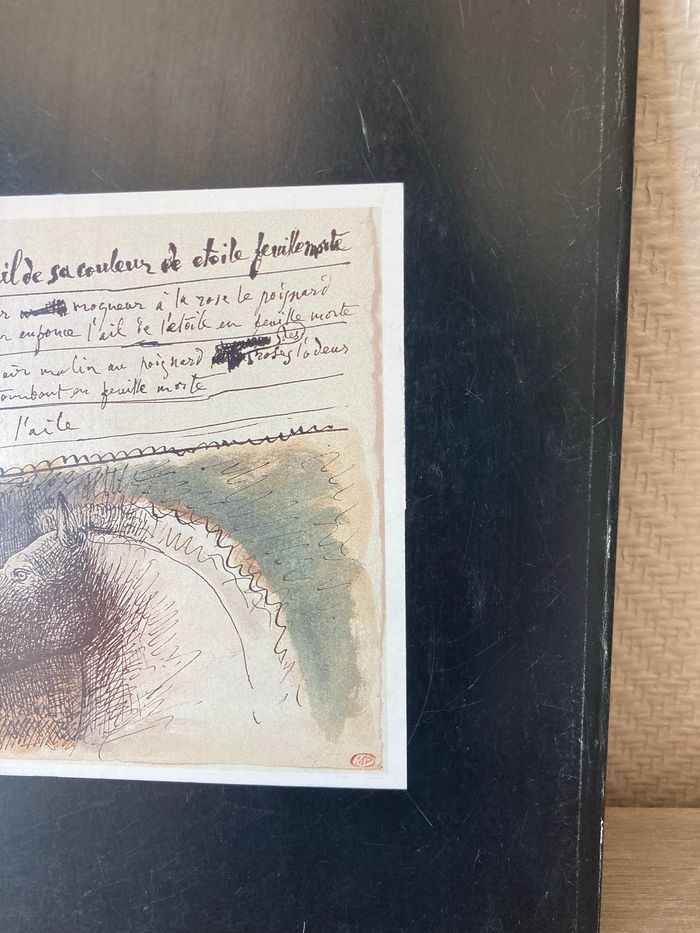 il de sa couleur de etoile feuille morte
moqueur à la rose le poignard
enfonce l'ail de l'etoile en feuille morte
malin au poignard des roses l'odeur
tombant en feuille morte
l'aile
MP